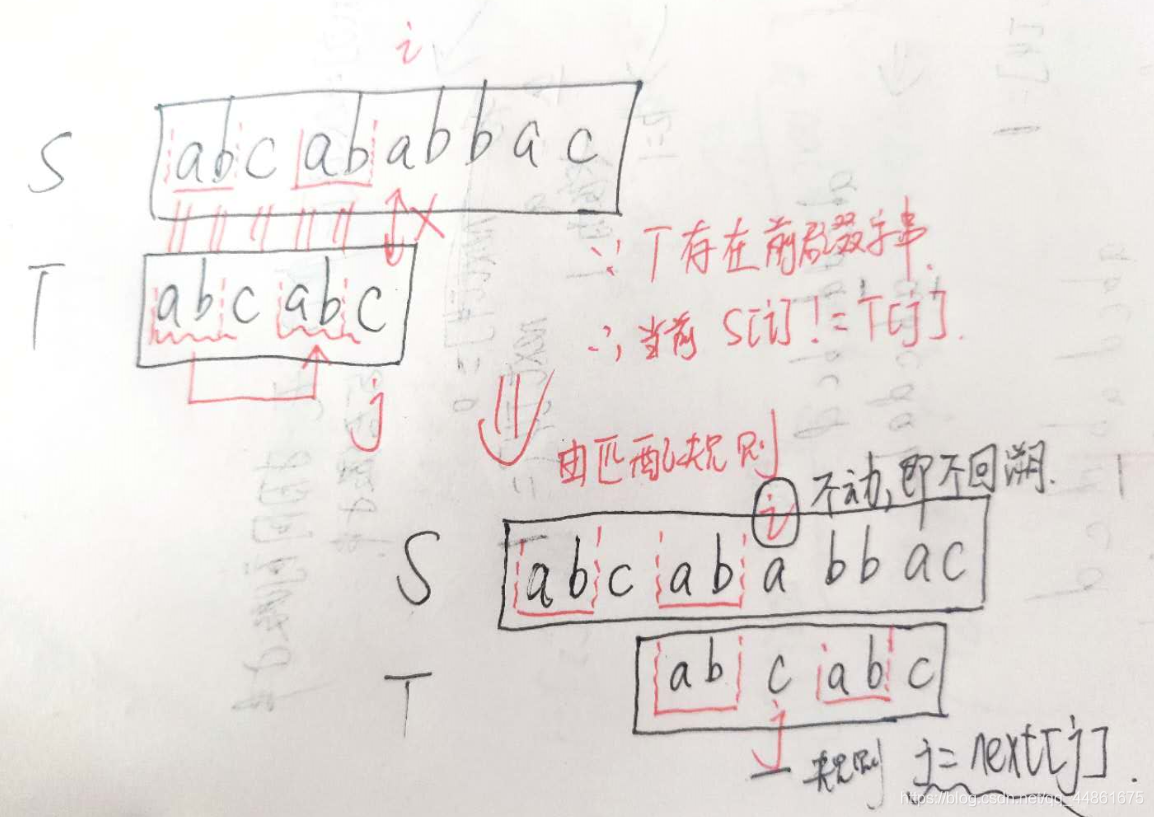 i
S abcabab b a c
T abcabc
∵ T存在前后缀子串.
∴ 当前 S[i] != T[j].
j
由匹配规则
i 不动,即不回溯.
S abcababbac
T abcabc
j
规则 j=next[j].
https://blog.csdn.net/qq_44861675